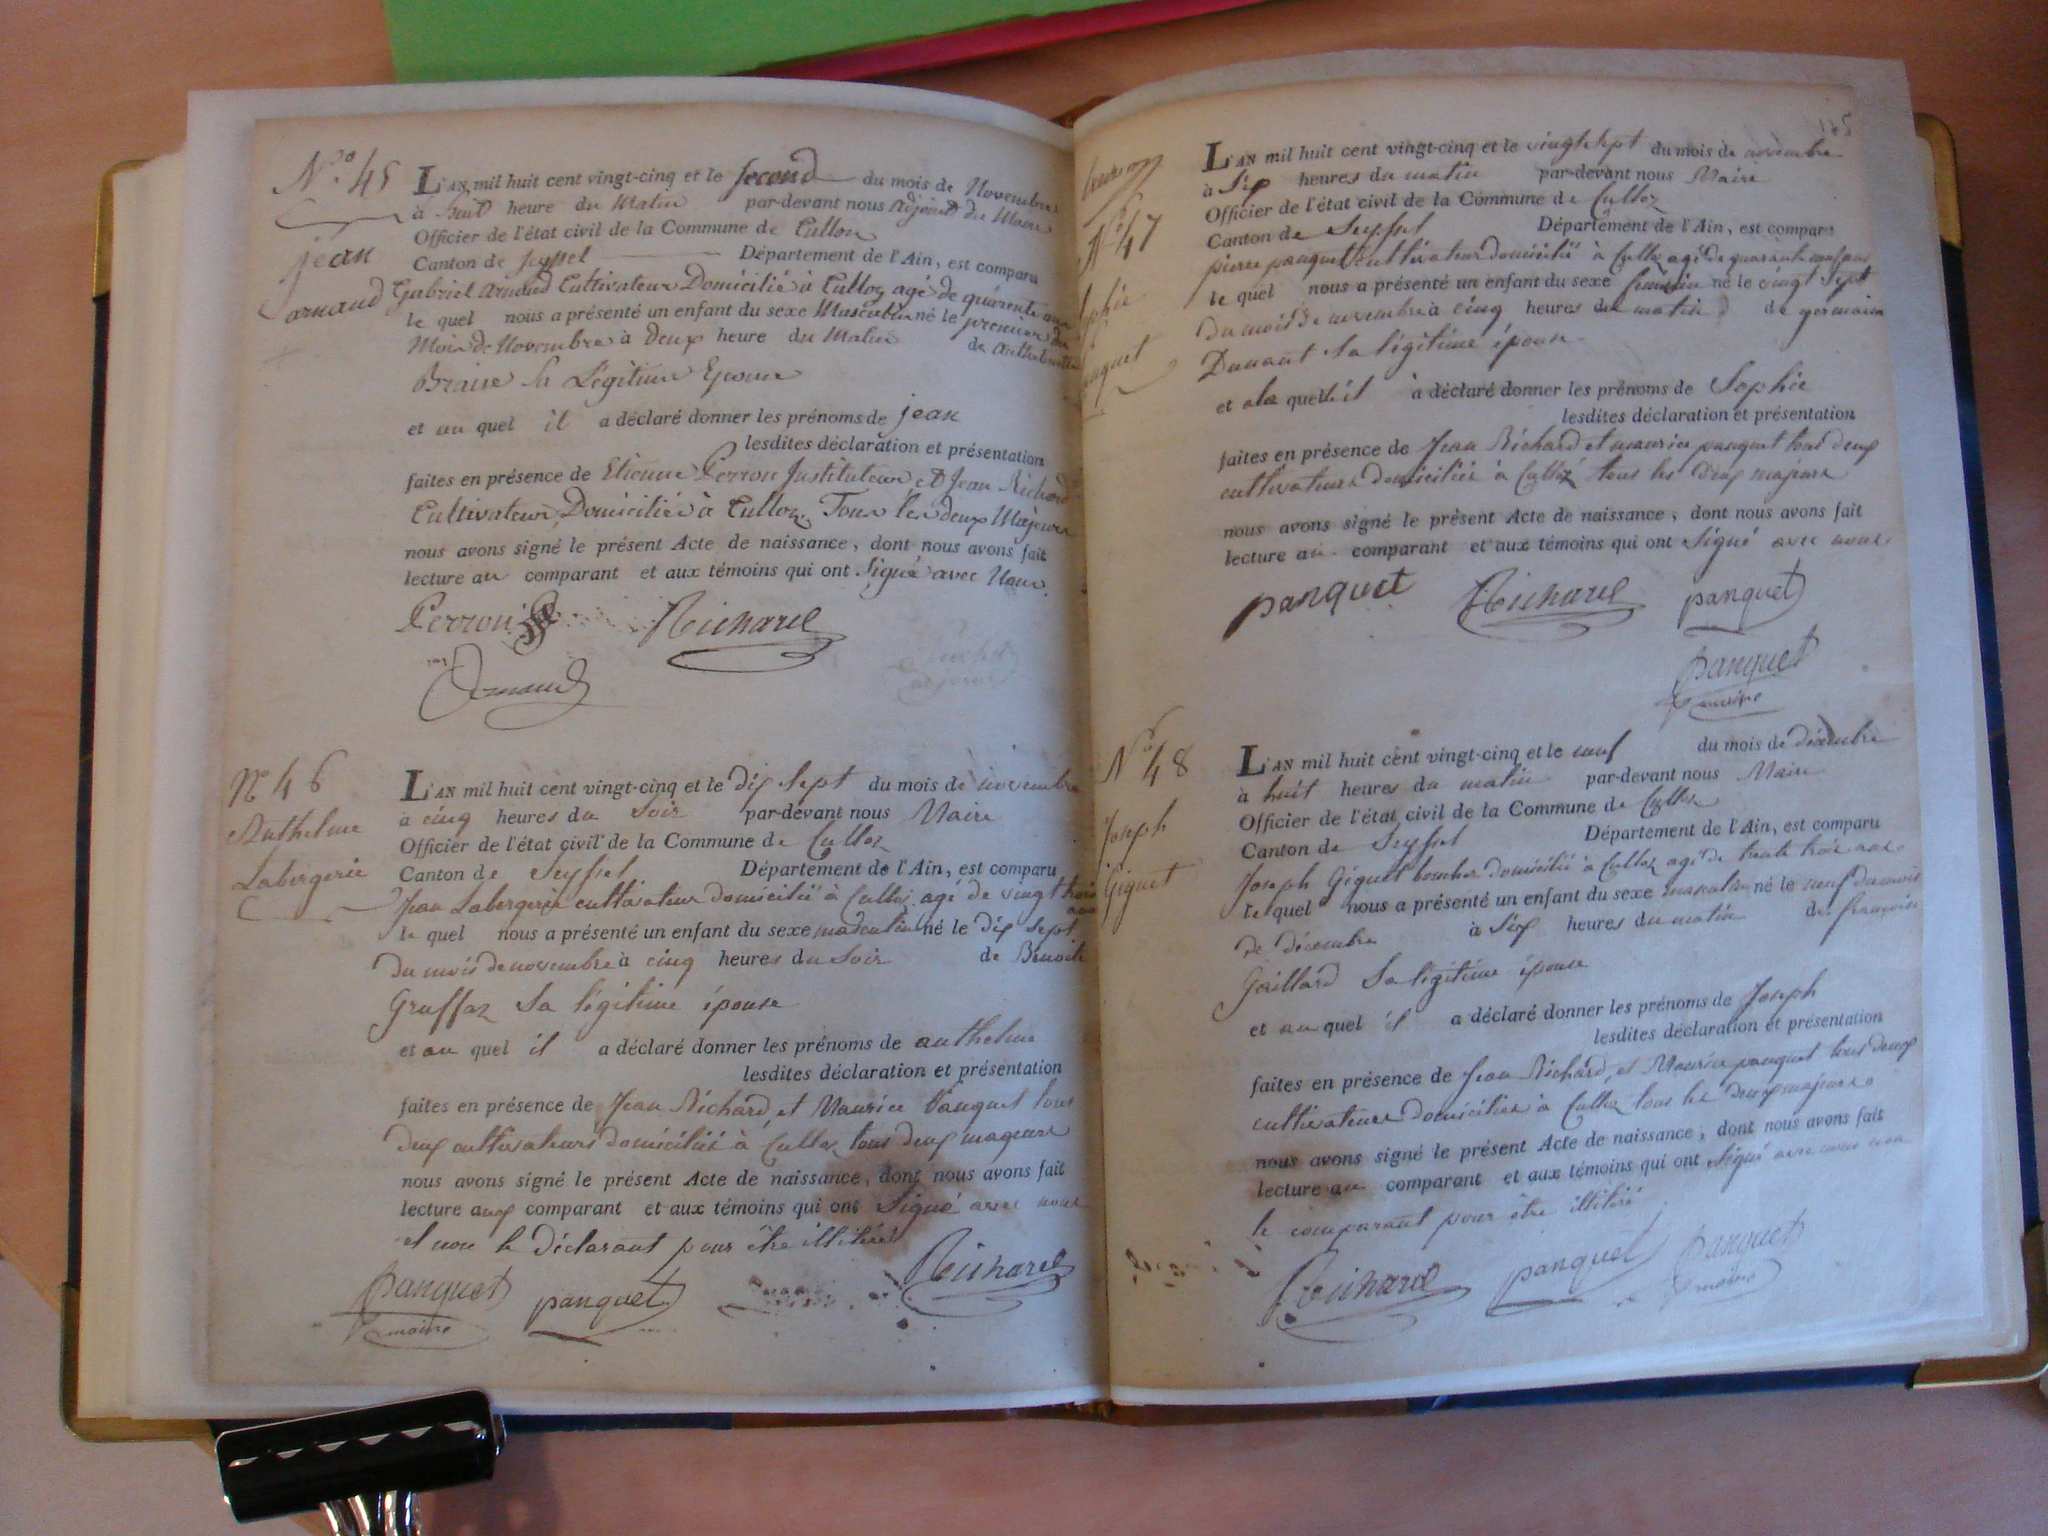 No. 45
jean
arnaud
L'AN mil huit cent vingt-cinq et le second du mois de Novembre
à huit heure du Matin par-devant nous Adjoint du Maire
Officier de l'état civil de la Commune de Culloz
Canton de Seyssel Département de l'Ain, est comparu
Gabriel Arnaud Cultivateur Domicilié à Culloz agé de quarente ans
le quel nous a présenté un enfant du sexe Masculin né le premier du
Mois de Novembre à deux heure du Matin de
Braise Sa Légitime Epouse
et au quel il a déclaré donner les prénoms de jean
lesdites déclaration et présentation
faites en présence de Etienne Perron Instituteur et Jean Richard
Cultivateur Domiciliés à Culloz Tous les deux Majeurs
nous avons signé le présent Acte de naissance, dont nous avons fait
lecture au comparant et aux témoins qui ont Signé avec Nous.
Perron Richard
Arnaud
No 46
Anthelme
Labergerie
L'AN mil huit cent vingt-cinq et le dix sept du mois de novembre
à cinq heures du Soir par-devant nous Maire
Officier de l'état civil de la Commune de Culloz
Canton de Seyssel Département de l'Ain, est comparu
Jean Labergerie cultivateur domicilié à Culloz agé de vingt trois
ans
le quel nous a présenté un enfant du sexe masculin né le dix sept
du mois de novembre à cinq heures du Soir de Benoite
Gruffaz Sa légitime épouse
et au quel il a déclaré donner les prénoms de anthelme
lesdites déclaration et présentation
faites en présence de Jean Richard et Maurice Panquet tous
deux cultivateurs domiciliés à Culloz tous deux mageurs
nous avons signé le présent Acte de naissance, dont nous avons fait
lecture aux comparant et aux témoins qui ont Signé avec nous
et non le déclarant pour être illitéré
panquet panquet Richard
maire
No 47
L'AN mil huit cent vingt-cinq et le vingt Sept du mois de novembre
à Six heures du matin par-devant nous Maire
Officier de l'état civil de la Commune de Culloz
Canton de Seyssel Département de l'Ain, est comparu
pierre panquet cultivateur domicilié à Culloz agé de quarante
le quel nous a présenté un enfant du sexe féminin né le vingt Sept
du mois de novembre à cinq heures du matin de germaine
Dunant Sa légitime épouse
et a la quelle il a déclaré donner les prénoms de Sophie
lesdites déclaration et présentation
faites en présence de Jean Richard et maurice panquet tous deux
cultivateurs domiciliés à Culloz tous les deux majeurs
nous avons signé le présent Acte de naissance, dont nous avons fait
lecture au comparant et aux témoins qui ont Signé avec nous
panquet Richard panquet
panquet
maire
No 48
Joseph
Giguet
L'AN mil huit cent vingt-cinq et le neuf du mois de décembre
à huit heures du matin par-devant nous Maire
Officier de l'état civil de la Commune de Culloz
Canton de Seyssel Département de l'Ain, est comparu
Joseph Giguet boucher domicilié à Culloz agé de trente trois ans
le quel nous a présenté un enfant du sexe masculin né le neuf du mois
de décembre à Six heures du matin de françoise
Gaillard Sa légitime épouse
et au quel il a déclaré donner les prénoms de Joseph
lesdites déclaration et présentation
faites en présence de Jean Richard, et Maurice panquet tous deux
cultivateurs domiciliés à Culloz tous les deux majeurs
nous avons signé le présent Acte de naissance, dont nous avons fait
lecture au comparant et aux témoins qui ont Signé avec nous non
le comparant pour être illitéré
Richard panquet panquet
maire